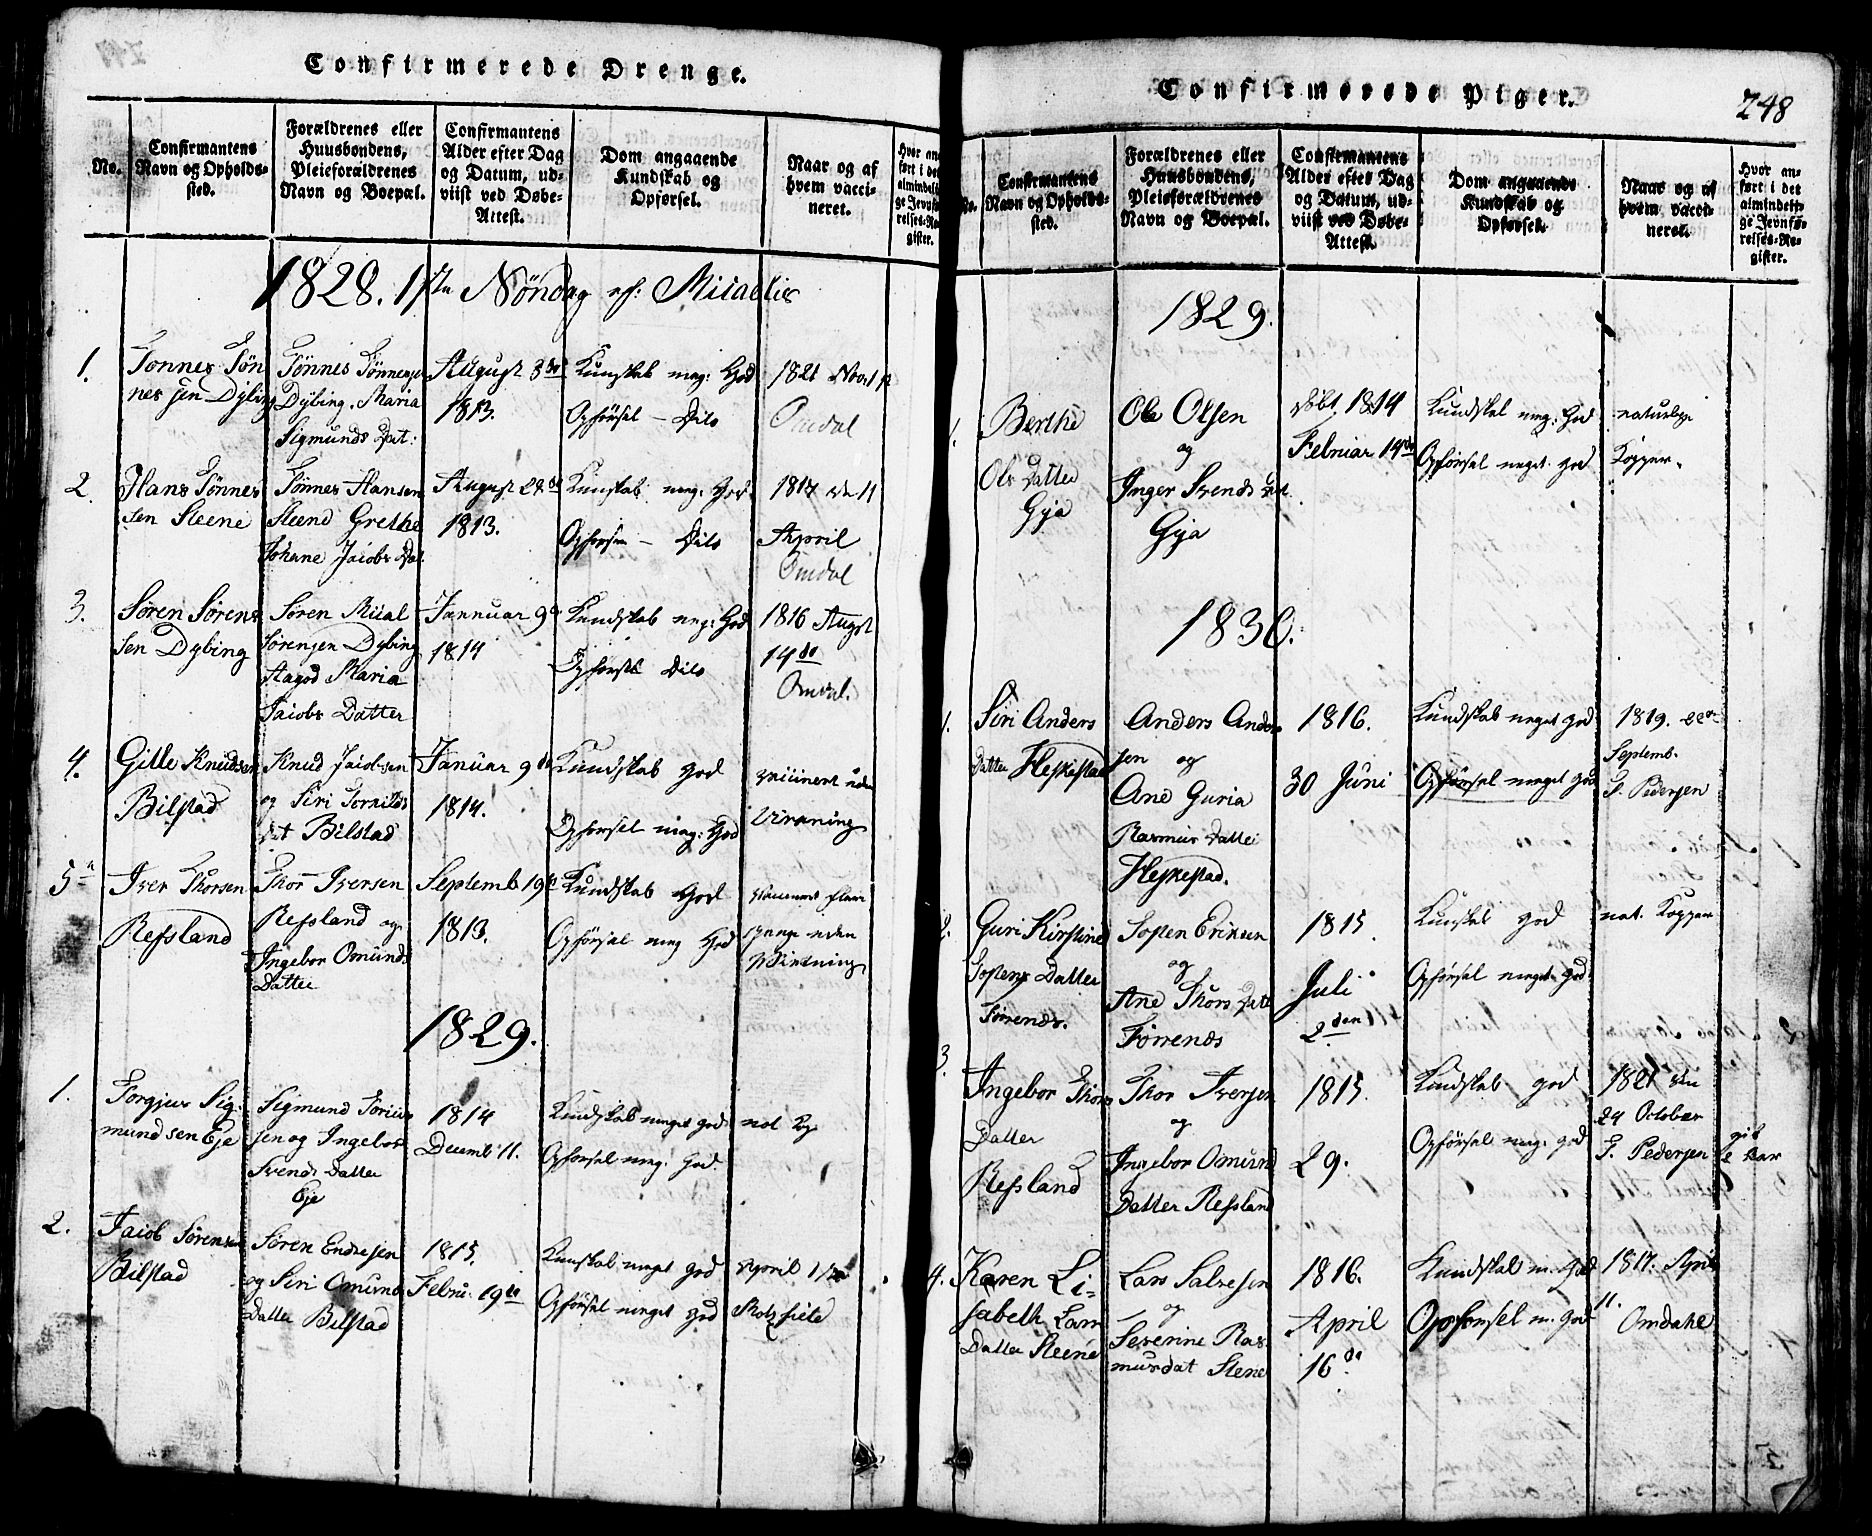 Confirmerede Drenge.
No.
Confirmantens
Navn og Opholds-
sted.
Forældrenes eller
Huusbondens,
Pleieforældrenes
Navn og Boepæl.
Confirmantens
Alder efter Dag
og Datum, ud-
viist ved Døbe-
Attest.
Dom angaaende
Kundskab og
Opførsel.
Naar og af
hvem vacci-
neret.
1828. 17de Söndag
1.
Tönnes Tön
nesen Dybing
Tönnes Tönnesen
Dybing. Maria
Sigmunds Dat:
August 3
1813.
Kunskab meg: God
Opförsel – Dito
1821 Nov:
Omdal
2.
Hans Tönnes
sen Steene
Tönnes Hansen
Steene Grethe
Johane Jacobs Dat.
August
1813.
Kunskab meg: God
Opförsel – Dito
1817 den 11
April
Omdal
3.
Sören Sörens
sen Dybing
Sören
Sörensen Dybing
Aagod Maria
Jacobs Datter
Januar 9
1814
Kundskab meg: God
Opförsel Dito
1816 Augst
14de
Omdal.
4.
Gitle Knudsen
Bilstad
Knud Jacobsen
og Siri
Dat Bilstad
Januar 9
1814.
Kundskab God
Opförsel meg: God
vaccineret uden
Virkning
5
Iver Thorsen
Refsland
Thor Iversen
Refsland og
Ingebor Omunds
Datter
Septemb. 19
1813.
Kundskab God
Opförsel meg God
gange uden
Virkning
1829.
1.
Torgjus Sig
mundsen Eje
Sigmund
sen og Ingebor
Svends Datter
Eje
1814
Decemb. 11.
Kundskab meget god
Opförsel meg. God.
nat Kop
2.
Jacob Sörensen
Bilstad
Sören Endresen
og Siri Omunds
Datter Bilstad
1815.
Febru. 19de
Kunskab meget god
Opförsel meget god
April
Confirmerede Piger.
248
No.
Confirmantens
Navn og Opholds-
sted.
Forældrenes eller
Huusbondens,
Pleieforældrenes
Navn og Boepæl.
Confirmantens
Alder efter Dag
og Datum, ud-
viist ved Døbe-
Attest.
Dom angaaende
Kundskab og
Opførsel.
Naar og af
hvem vacci-
neret.
Hvor an-
ført i det
almindeli-
ge Jevnfø-
relses-Re-
gister.
1829.
1.
Berthe
Ols Datter
Gya
Ole Olsen
og
Inger Svends Dat.
Gya
döbt 1814
Februar 14de
Kundskab meg: God
Opförsel meget god
naturlige
Kopper.
1830.
1.
Siri Anders
Datter Heskestad
Anders Anders
sen og
Ane Guria
Rasmus Datter
Heskestad.
1816.
30 Juni
Kundskab meget god
Opförsel meget god
1819.
Septemb.
S. Pedersen
2.
Guri Kirstine
Tostens Datter
Törrends.
Tosten Eriksen
og
Ane Thors Datt
Törrends
1815.
Juli
2den
Kunskab god
Opförsel meget God
nat. Kopper
3
Ingebor Thors
Datter
Refsland
Thor Iversen
og
Ingebor Omund
Datter Refsland
1815.
29.
Kundskab god
Opförsel meg. god
1821 den
24 October
S. Pedersen
4.
Karen Li-
sabeth Lars
Datter Steene
Lars Salvesen
og
Severine Ras
musdat Stene
1816.
April
16de
Kundskab m. God
Opförsel m. God
1817. April
11.
Omdahl